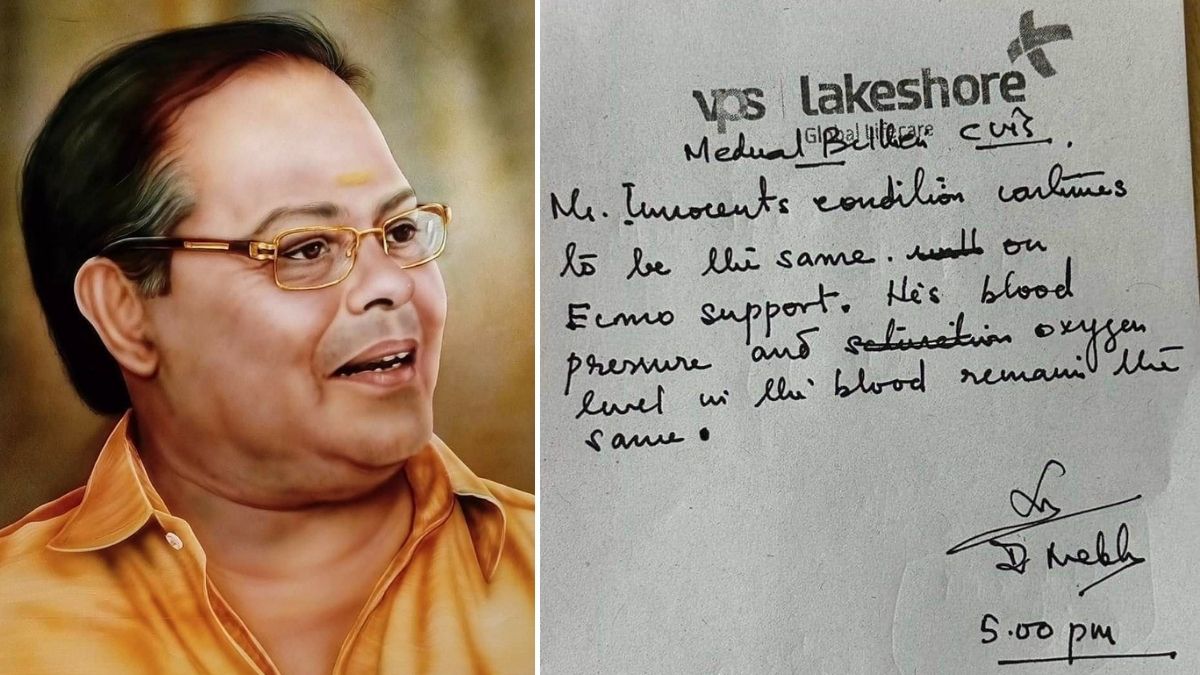 vps lakeshore
Global Lifecare
Medical
Mr. Innocents condition continues
to be the same. on
Ecmo support. His blood
pressure and saturation oxygen
level in the blood remain the
same.
5.00 pm